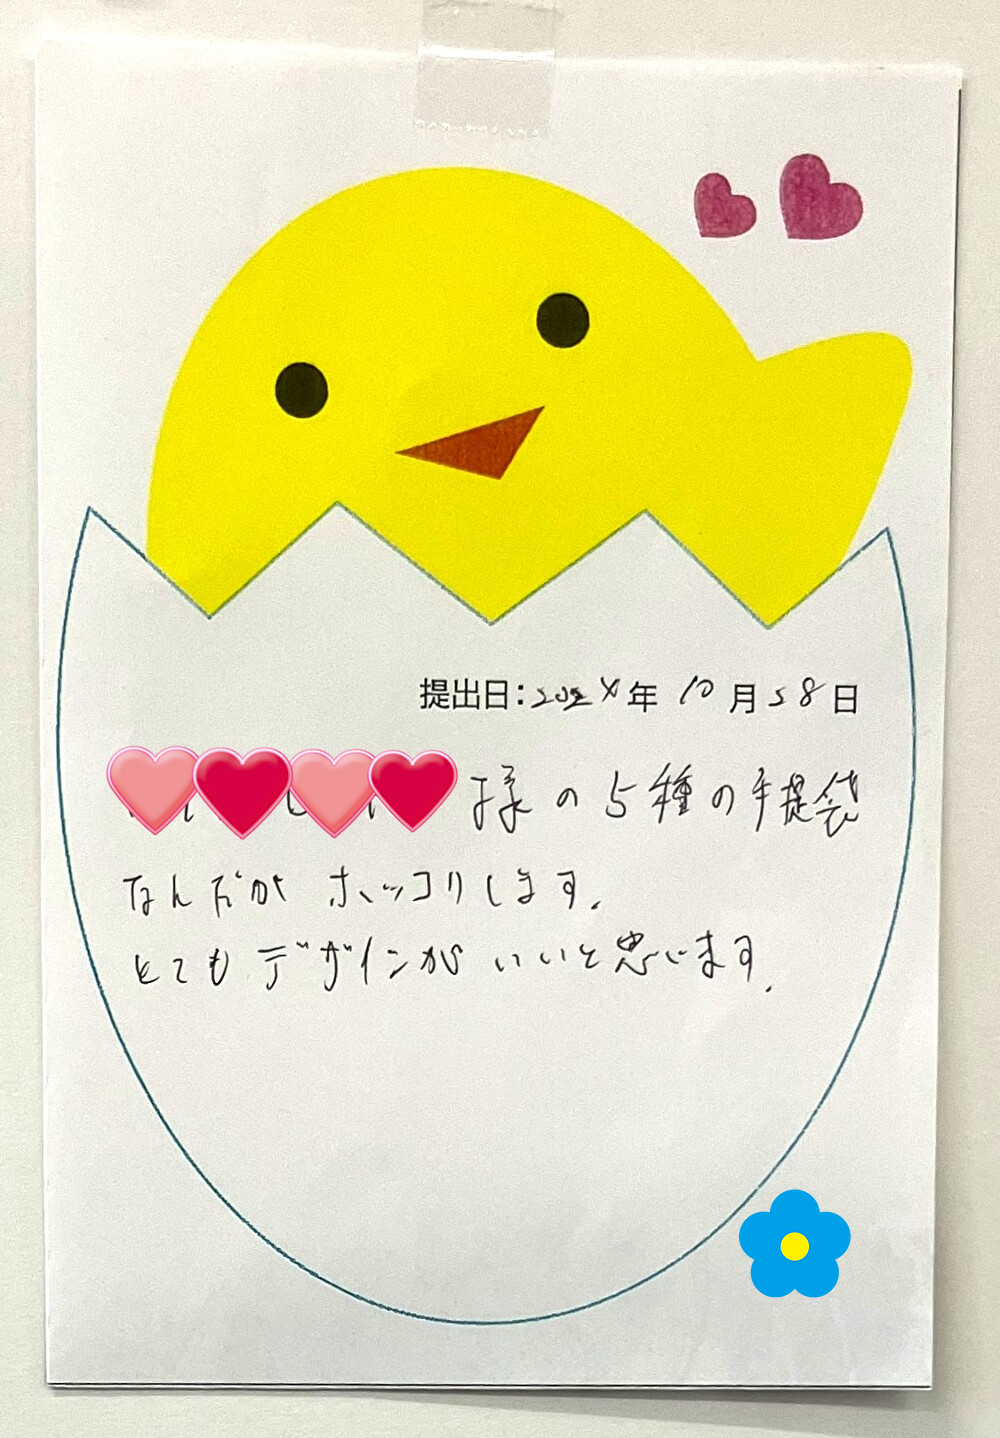 提出日:2024年10月28日
様の5種の手提袋
なんだか ホッコリします。
とても デザインが いいと思います。